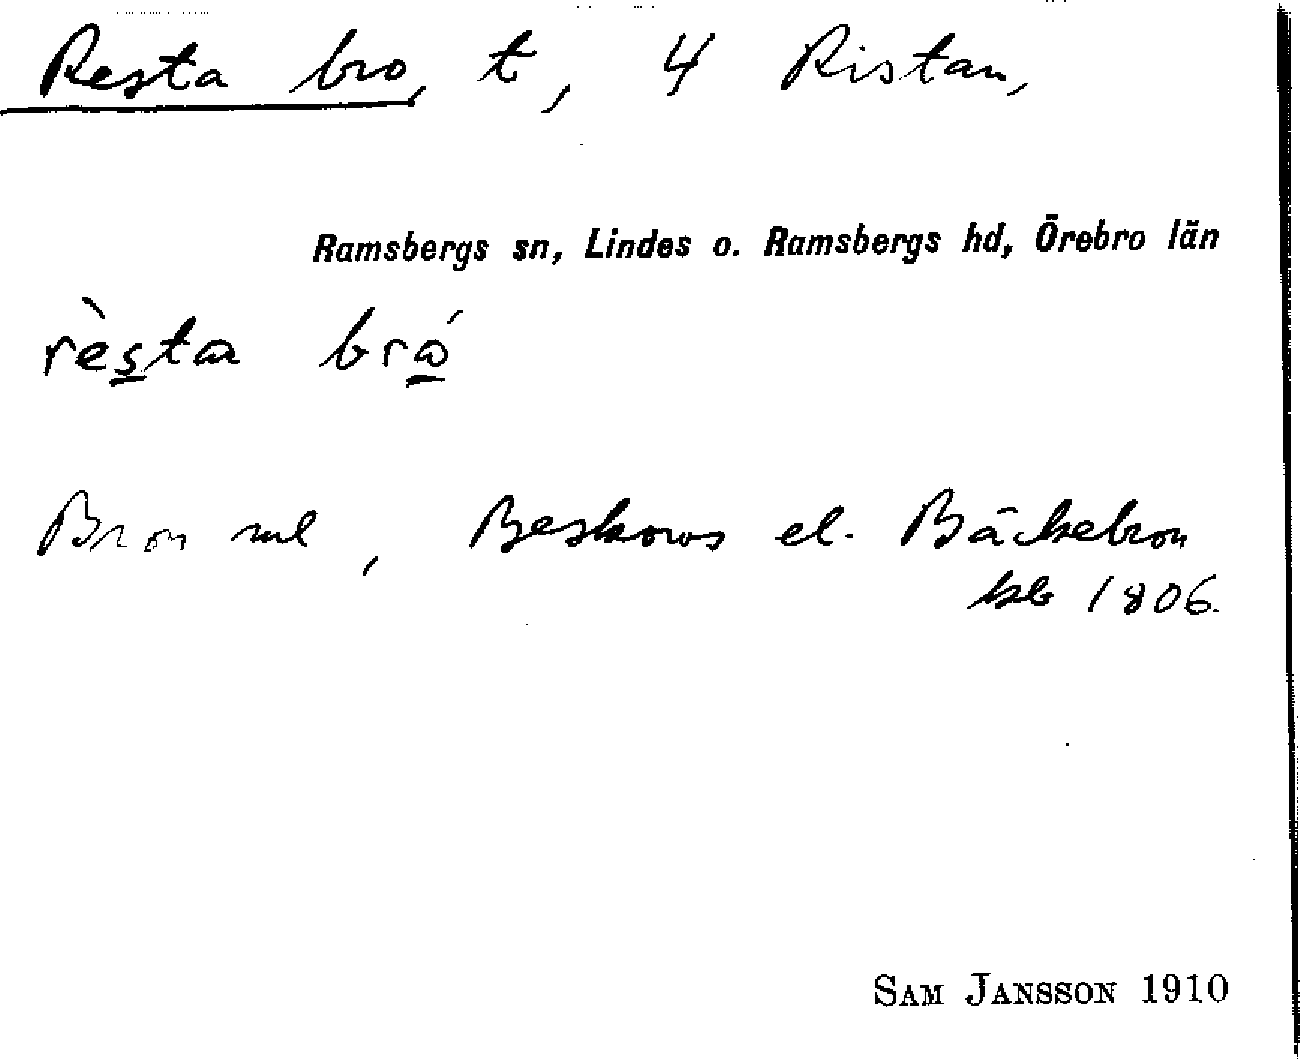 Resta bro, t, 4 Ristan,
Ramsbergs sn, Lindes o. Ramsbergs hd, Örebro län
rès̲ta bró̲
Bron ml, Beskows el. Bäckebron
kb 1806.
SAM JANSSON 1910